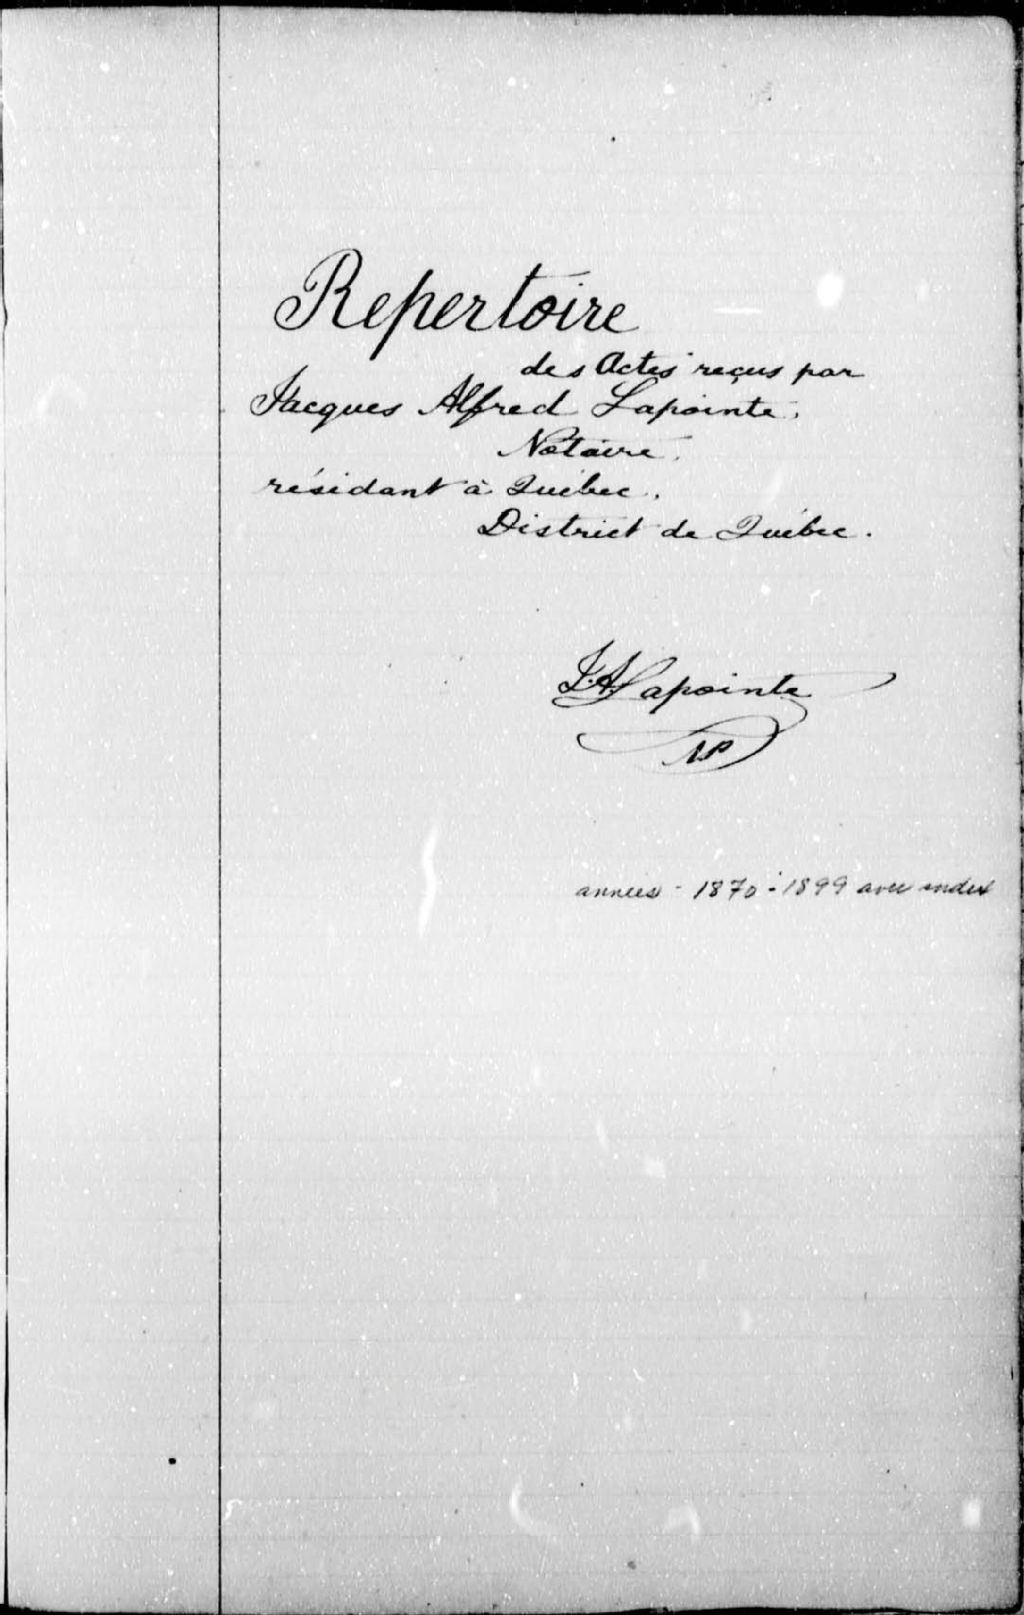 Repertoire
des Actes reçus par
Jacques Alfred Lapointe,
Notaire,
résidant à Québec,
District de Québec.
J. A. Lapointe
NP
années - 1870 - 1899 avec index